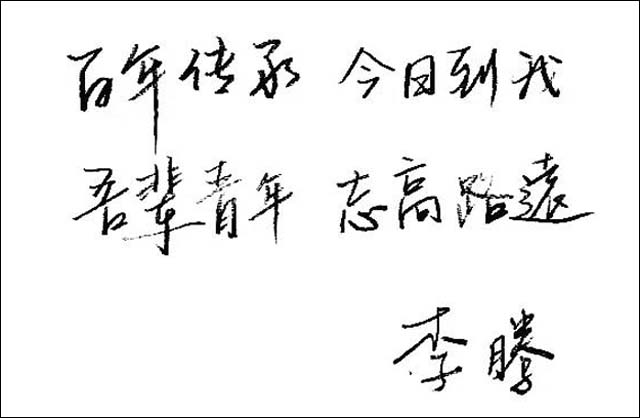 百年传承 今日到我
吾辈青年 志高路遠
李腾